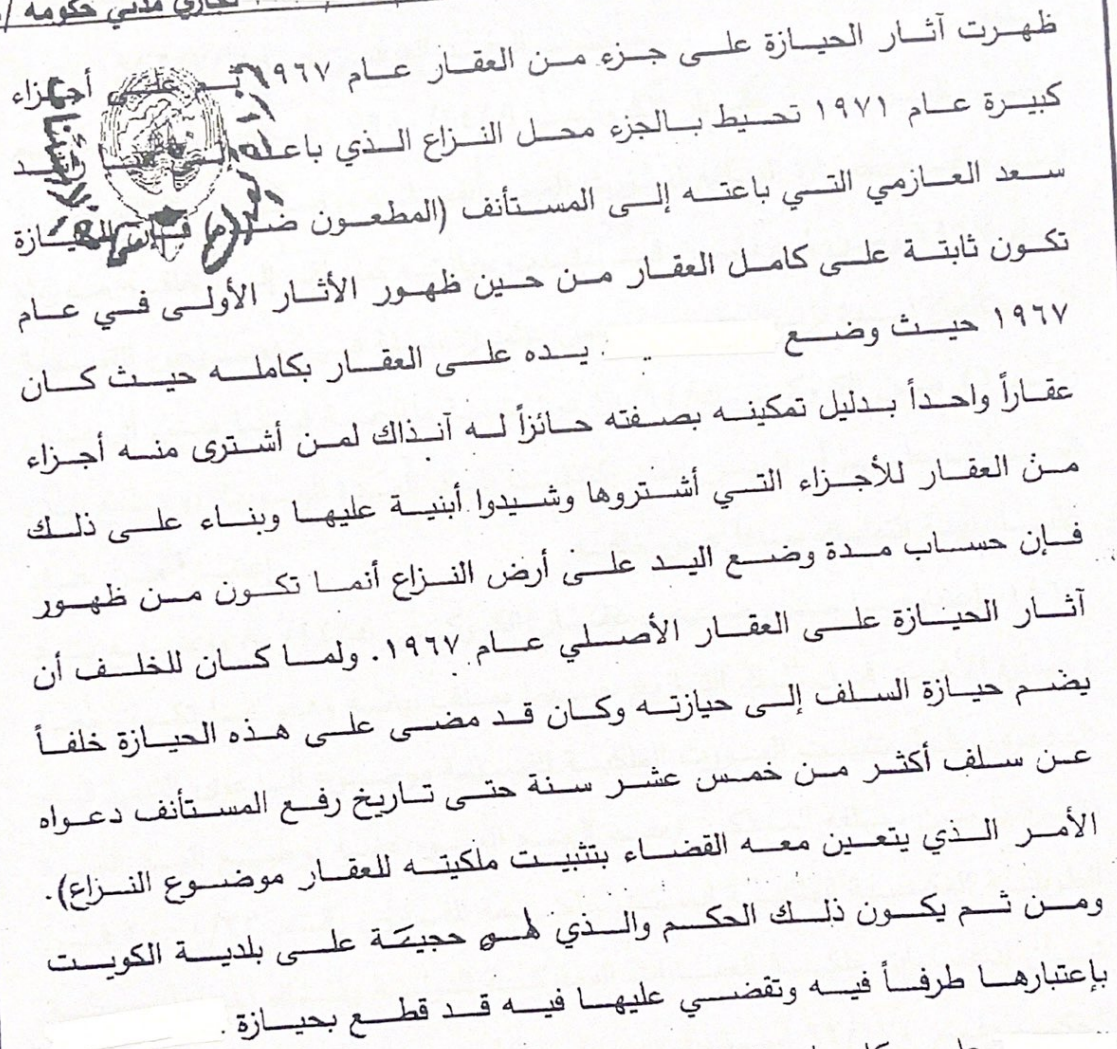 مدني حكومة /
ظهرت آثار الحيازة على جزء من العقار عام ١٩٦٧ ثم على أجزاء
كبيرة عام ١٩٧١ تحيط بالجزء محل النزاع الذي باعه
سعد العازمي التي باعته إلى المستأنف (المطعون ضده) فإن الحيازة
تكون ثابتة على كامل العقار من حين ظهور الأثار الأولى في عام
١٩٦٧ حيث وضع يده على العقار بكامله حيث كان
عقاراً واحداً بدليل تمكينه بصفته حائزاً له آنذاك لمن أشترى منه أجزاء
من العقار للأجزاء التي أشتروها وشيدوا أبنية عليها وبناء على ذلك
فإن حساب مدة وضع اليد على أرض النزاع أنما تكون من ظهور
آثار الحيازة على العقار الأصلي عام ١٩٦٧. ولما كان للخلف أن
يضم حيازة السلف إلى حيازته وكان قد مضى على هذه الحيازة خلفاً
عن سلف أكثر من خمس عشر سنة حتى تاريخ رفع المستأنف دعواه
الأمر الذي يتعين معه القضاء بتثبيت ملكيته للعقار موضوع النزاع).
ومن ثم يكون ذلك الحكم والذي حجية على بلدية الكويت
بإعتبارها طرفاً فيه وتقضي عليها فيه قد قطع بحيازة